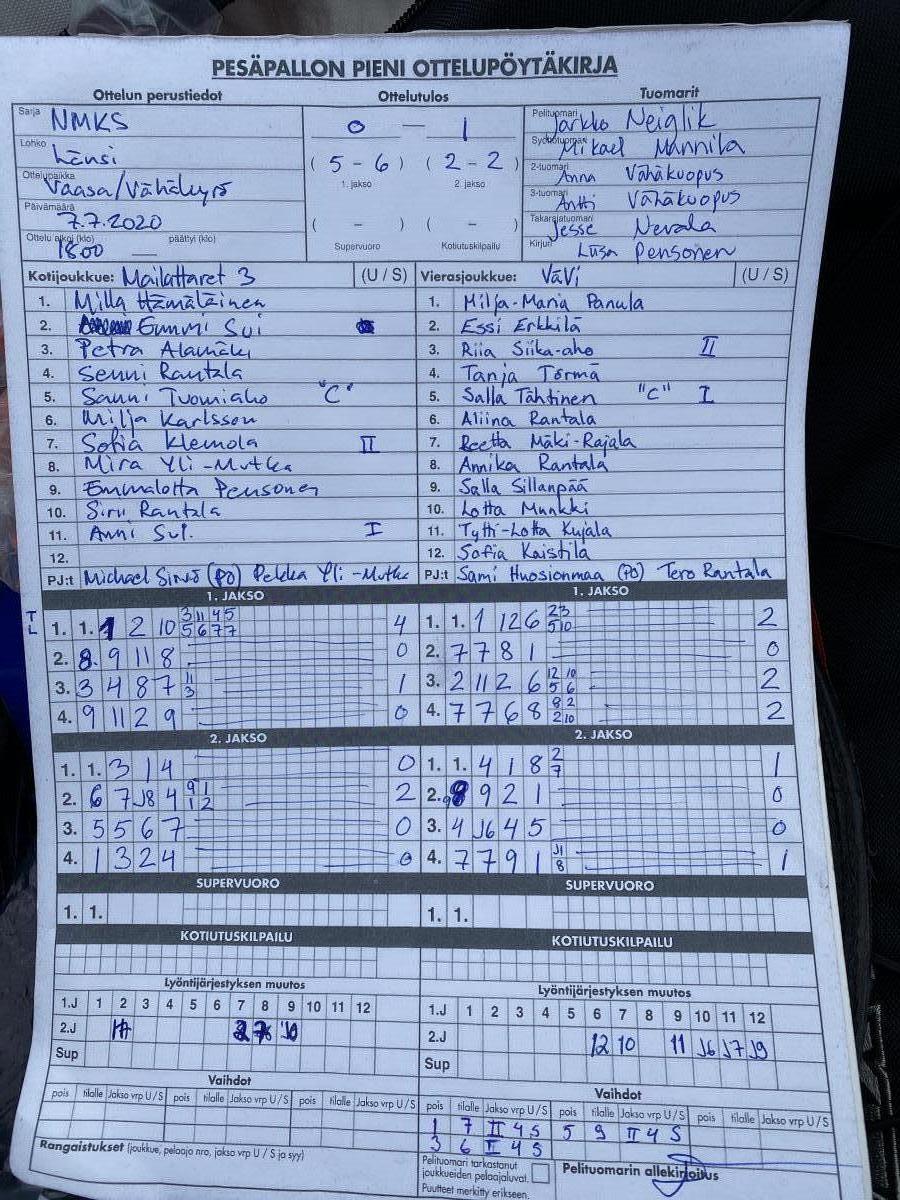 PESÄPALLON PIENI OTTELUPÖYTÄKIRJA
Ottelun perustiedot
Sarja NMKS
Lohko Länsi
Ottelupaikka Vaasa/Vähäkyrö
Päivämäärä 7.7.2020
Ottelu alkoi (klo) 1800 päättyi (klo) —
Ottelutulos
0 — 1
( 5 - 6 ) ( 2 - 2 )
1. jakso 2. jakso
( - ) ( - )
Supervuoro Kotiutuskilpailu
Tuomarit
Pelituomari Jarkko Neiglik
Syöttötuomari Mikael Mannila
2-tuomari Anna Vähäkuopus
3-tuomari Antti Vähäkuopus
Takarajatuomari Jesse Nevala
Kirjuri Liisa Pensonen
Kotijoukkue: Mailattaret 3 (U / S)
1. Milla Hämäläinen
2. Emmi Sui
3. Petra Alamäki
4. Senni Rantala
5. Sanni Tuomiaho "C"
6. Milja Karlsson
7. Sofia Klemola II
8. Mira Yli-Mutka
9. Emmalotta Pensonen
10. Siru Rantala
11. Anni Sui. I
12.
PJ:t Michael (PJ) Pekka Yli-Mutka
Vierasjoukkue: VäVi (U / S)
1. Milja-Maria Panula
2. Essi Erkkilä
3. Riia Siika-aho II
4. Tanja Törmä
5. Salla Tähtinen "C" I
6. Aliina Rantala
7. Reetta Mäki-Rajala
8. Annika Rantala
9. Salla Sillanpää
10. Lotta Munkki
11. Tytti-Lotta Kujala
12. Sofia Kaistila
PJ:t Sami Huosionmaa (PJ) Tero Rantala
1. JAKSO
T
L
1. 1. 1 2 10 3 11 4 5 4
5 6 7 7
2. 8. 9 11 8 0
3. 3 4 8 7 11 1
3
4. 9 11 2 9 0
1. JAKSO
1. 1. 1 12 6 2 3 2
5 10
2. 7 7 8 1 0
3. 2 11 2 6 12 10 2
5 6
4. 7 7 6 8 8 2 2
2 10
2. JAKSO
1. 1. 3 1 4 0
2. 6 7 J8 4 9 1 2
1 2
3. 5 5 6 7 0
4. 1 3 2 4 0
2. JAKSO
1. 1. 4 1 8 2 1
7
2. 9 2 1 0
3. 4 J6 4 5 0
4. 7 7 9 1 J1 1
8
SUPERVUORO
1. 1.
SUPERVUORO
1. 1.
KOTIUTUSKILPAILU
KOTIUTUSKILPAILU
Lyöntijärjestyksen muutos
1.J 1 2 3 4 5 6 7 8 9 10 11 12
2.J
Sup
Lyöntijärjestyksen muutos
1.J 1 2 3 4 5 6 7 8 9 10 11 12
2.J 12 10 11 J6 J7 J9
Sup
Vaihdot
pois tilalle Jakso vrp U / S pois tilalle Jakso vrp U / S pois tilalle Jakso vrp U / S
Vaihdot
pois tilalle Jakso vrp U / S pois tilalle Jakso vrp U / S pois tilalle Jakso vrp U / S
1 7 II 4 S 5 9 II 4 S
3 6 II 4 S
Rangaistukset (joukkue, pelaaja nro, jakso vrp U / S ja syy)
Pelituomari tarkastanut
joukkueiden pelaajaluvat.
Puutteet merkitty erikseen.
Pelituomarin allekirjoitus